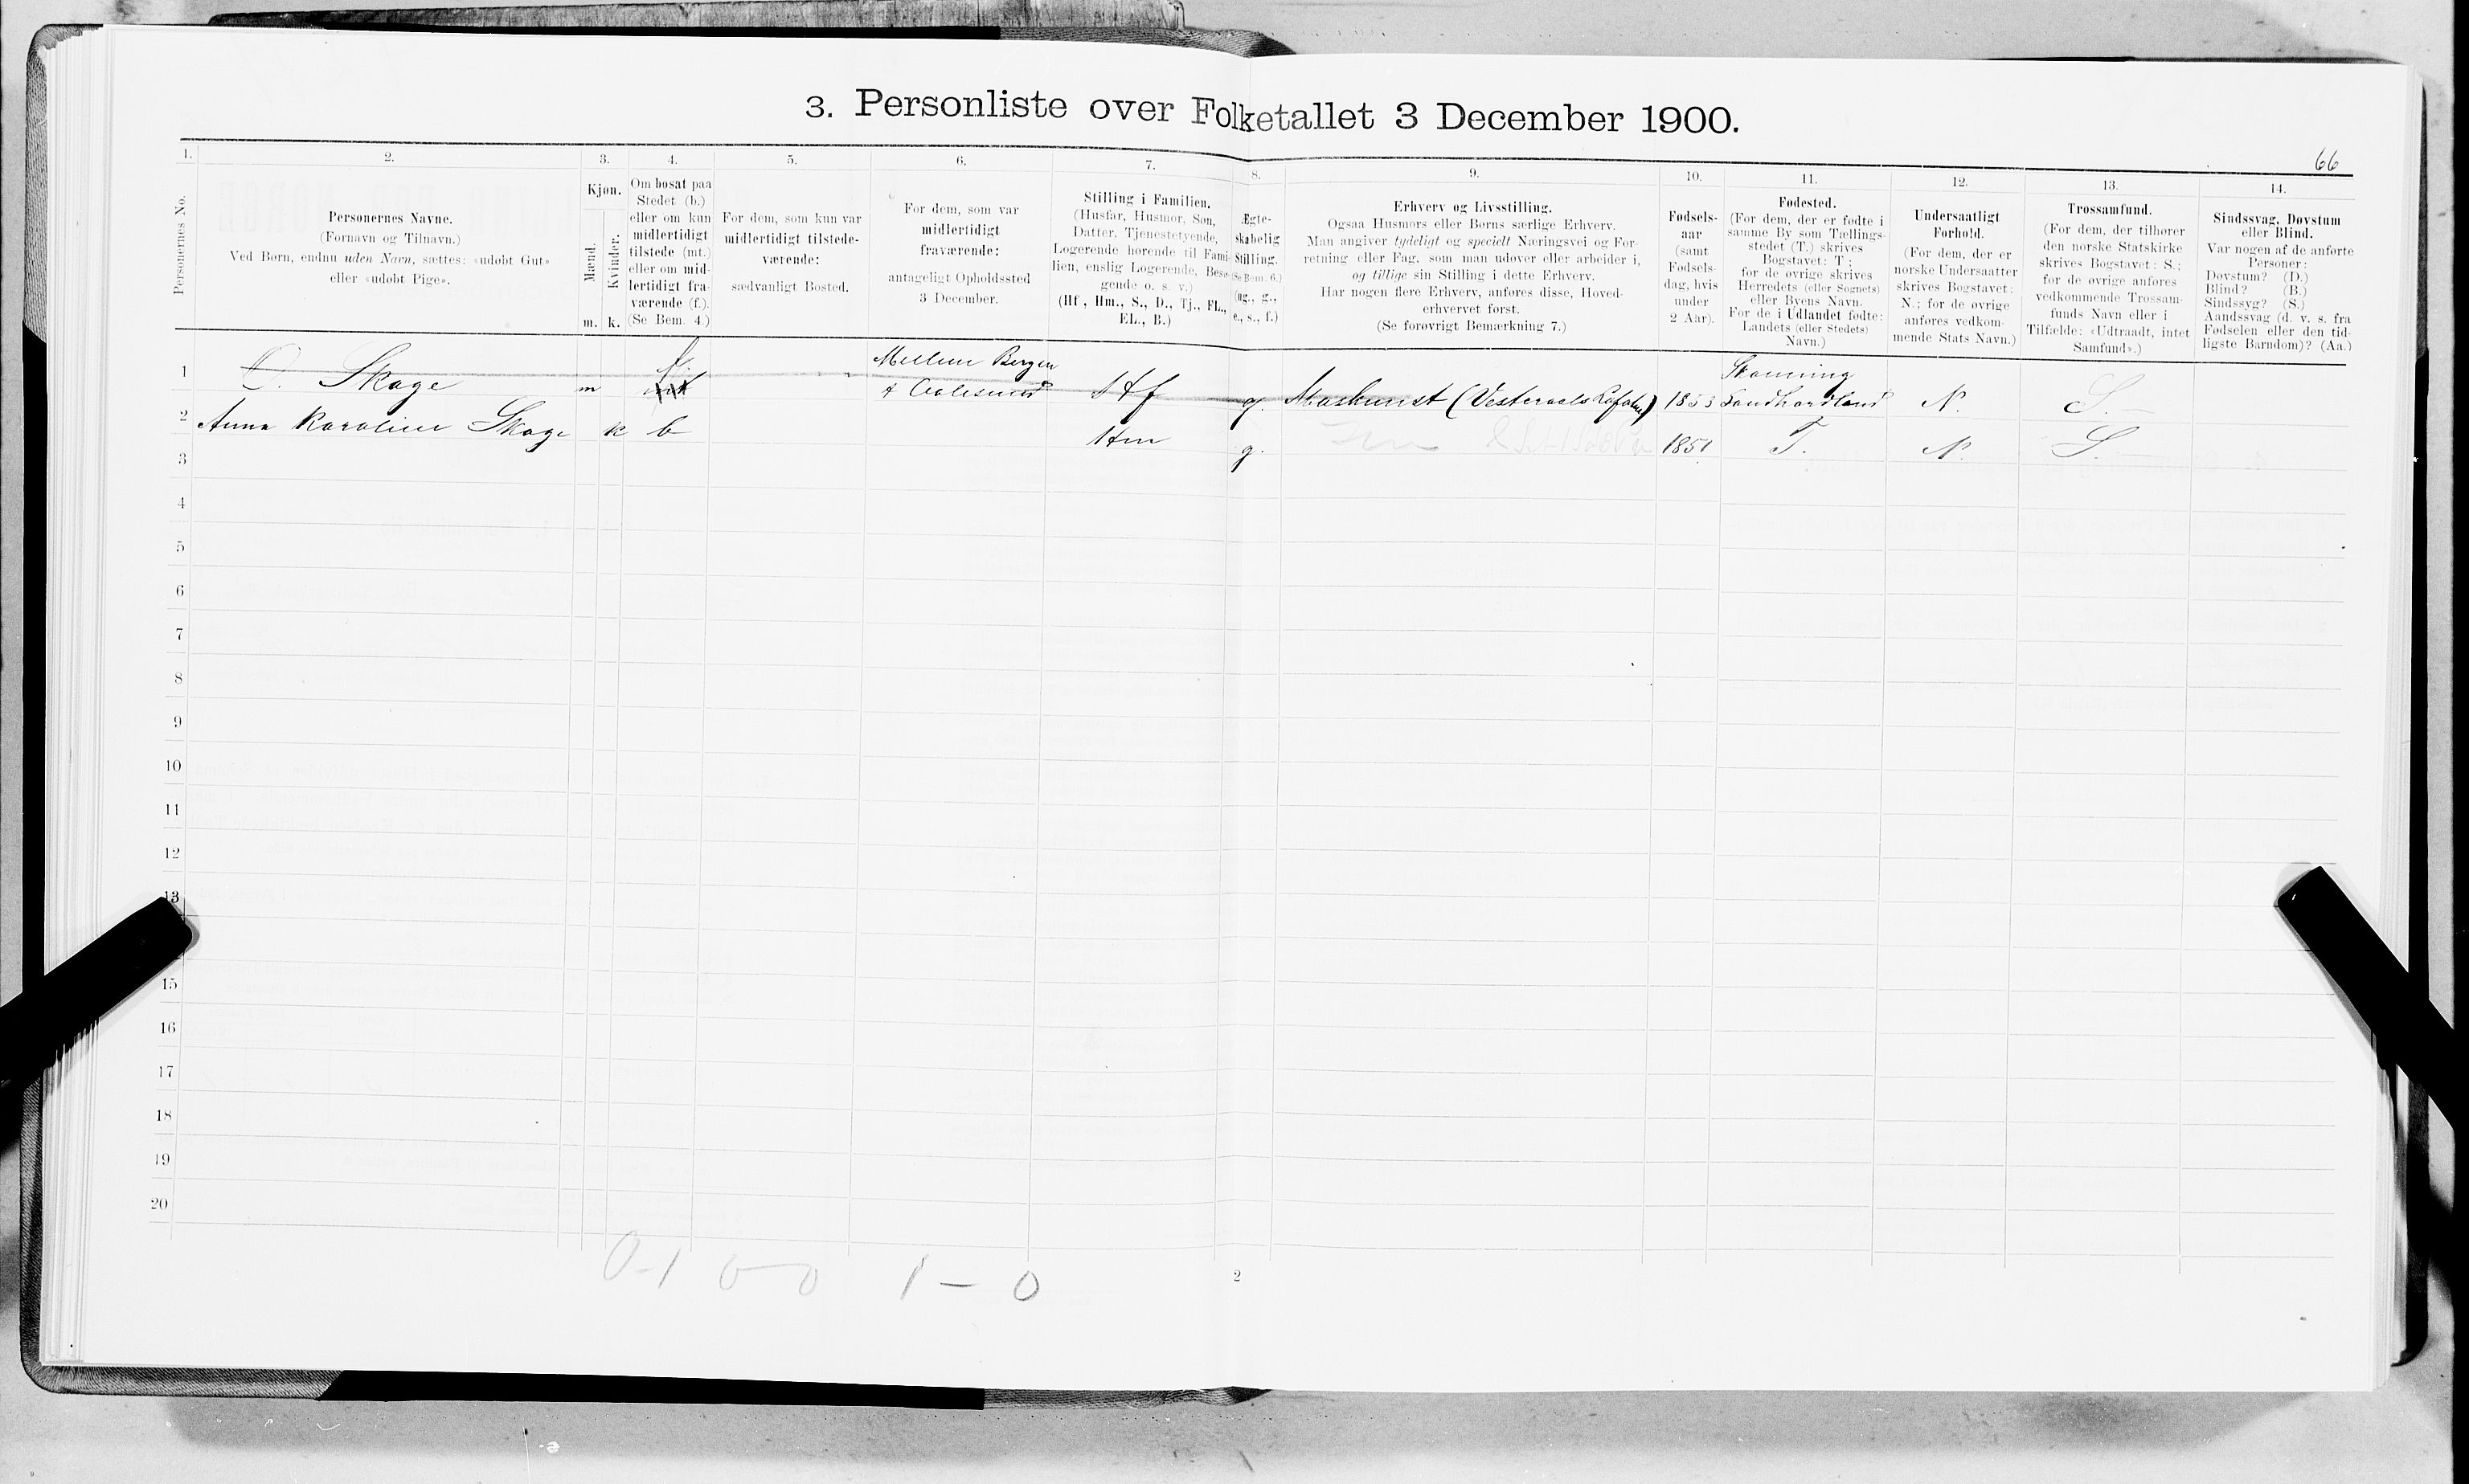 3. Personliste over Folketallet 3 December 1900.
66
1. 2. 3. 4. 5. 6. 7. 8. 9. 10. 11. 12. 13. 14.
Personernes No.
Personernes Navne.
(Fornavn og Tilnavn.)
Ved Børn, endnu uden Navn, sættes: «udøbt Gut»
eller «udøbt Pige».
Kjøn.
Mænd.
Kvinder.
m. k.
Om bosat paa
Stedet (b.)
eller om kun
midlertidigt
tilstede (mt.)
eller om mid-
lertidigt fra-
værende (f.).
(Se Bem. 4.)
For dem, som kun var
midlertidigt tilstede-
værende:
sædvanligt Bosted.
For dem, som var
midlertidigt
fraværende:
antageligt Opholdssted
3 December.
Stilling i Familien.
(Husfar, Husmor, Søn,
Datter, Tjenestetyende,
Logerende hørende til Fami-
lien, enslig Logerende, Besø-
gende o. s. v.)
(Hf., Hm., S., D., Tj., FL.,
EL., B.)
Ægte-
skabelig
Stilling.
(Se Bem. 6.)
(ug., g.,
e., s., f.)
Erhverv og Livsstilling.
Ogsaa Husmors eller Børns særlige Erhverv.
Man angiver tydeligt og specielt Næringsvei og For-
retning eller Fag, som man udøver eller arbeider i,
og tillige sin Stilling i dette Erhverv.
Har nogen flere Erhverv, anføres disse, Hoved-
erhvervet først.
(Se forøvrigt Bemærkning 7.)
Fødsels-
aar
(samt
Fødsels-
dag, hvis
under
2 Aar).
Fødested.
(For dem, der er fødte i
samme By som Tællings-
stedet (T.) skrives
Bogstavet: T;
for de øvrige skrives
Herredets (eller Sognets)
eller Byens Navn.
For de i Udlandet fødte:
Landets (eller Stedets)
Navn.)
Undersaatligt
Forhold.
(For dem, der er
norske Undersaatter
skrives Bogstavet:
N.; for de øvrige
anføres vedkom-
mende Stats Navn.)
Trossamfund.
(For dem, der tilhører
den norske Statskirke
skrives Bogstavet: S.;
for de øvrige anføres
vedkommende Trossam-
funds Navn eller i
Tilfælde: «Udtraadt, intet
Samfund».)
Sindssvag, Døvstum
eller Blind.
Var nogen af de anførte
Personer:
Døvstum? (D.)
Blind? (B.)
Sindssyg? (S.)
Aandssvag (d. v. s. fra
Fødselen eller den tid-
ligste Barndom)? (Aa.)
1 O. Skage m f. mt Mellem Bergen
& Aalesund Hf g. Maskinist (Vesteraals 1853 Søndhordland N. S.
2 Anna Karoline Skage k b Hm g. 1851 T. N. S.
3
4
5
6
7
8
9
10
11
12
13
15
16
17
18
19
20
0-1 0-0 1-0
2